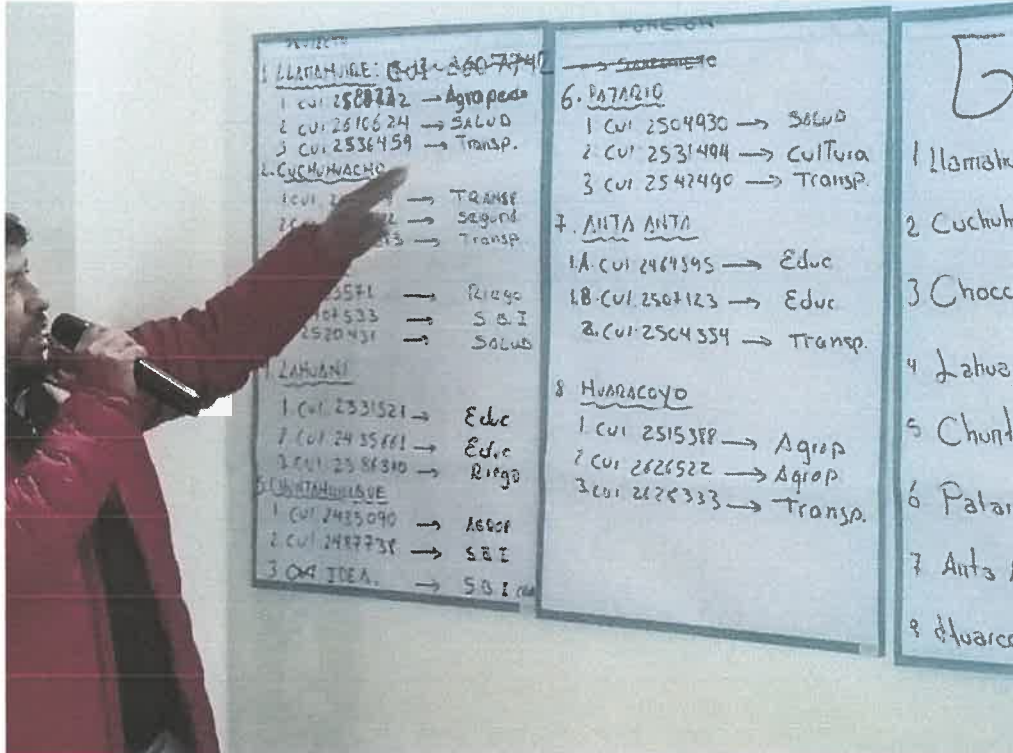 PROYECTO
1 LLAMAHUIRE:
1. CUI 2588222 → Agropecu
2 CUI 2610624 → SALUD
3 CUI 2536459 → Transp.
2. CUCHUHUACHO
1 CUI → TRANSP
→ Segurid.
→ Transp.
→ Riego
→ S B I
2520431 → SALUD
LAHUANI
1. CUI 2331521 → Educ
2. CUI 2435661 → Educ
3. CUI 2586310 → Riego
5. CHUNTAHUILLQUE
1 CUI 2435090 → AGROP
2. CUI 2487738 → S B I
3 IDEA. → S B I
FUNCION
6. PATARIO
1 CUI 2504930 → SALUD
2. CUI 2531494 → CulTura
3 CUI 2542490 → Transp.
7. ANTA ANTA
1.A. CUI 2464595 → Educ
1.B. CUI 2507123 → Educ
2. CUI 2504354 → Transp.
8 HUARACOYO
1. CUI 2515388 → Agrop
2 CUI 2626522 → Agrop.
3 CUI 2628333 → Transp.
1 Llamahu
2 Cuchuh
3 Chocc
4 Lahua
5 Chunt
6 Patar
7 Anta
8 Huarco